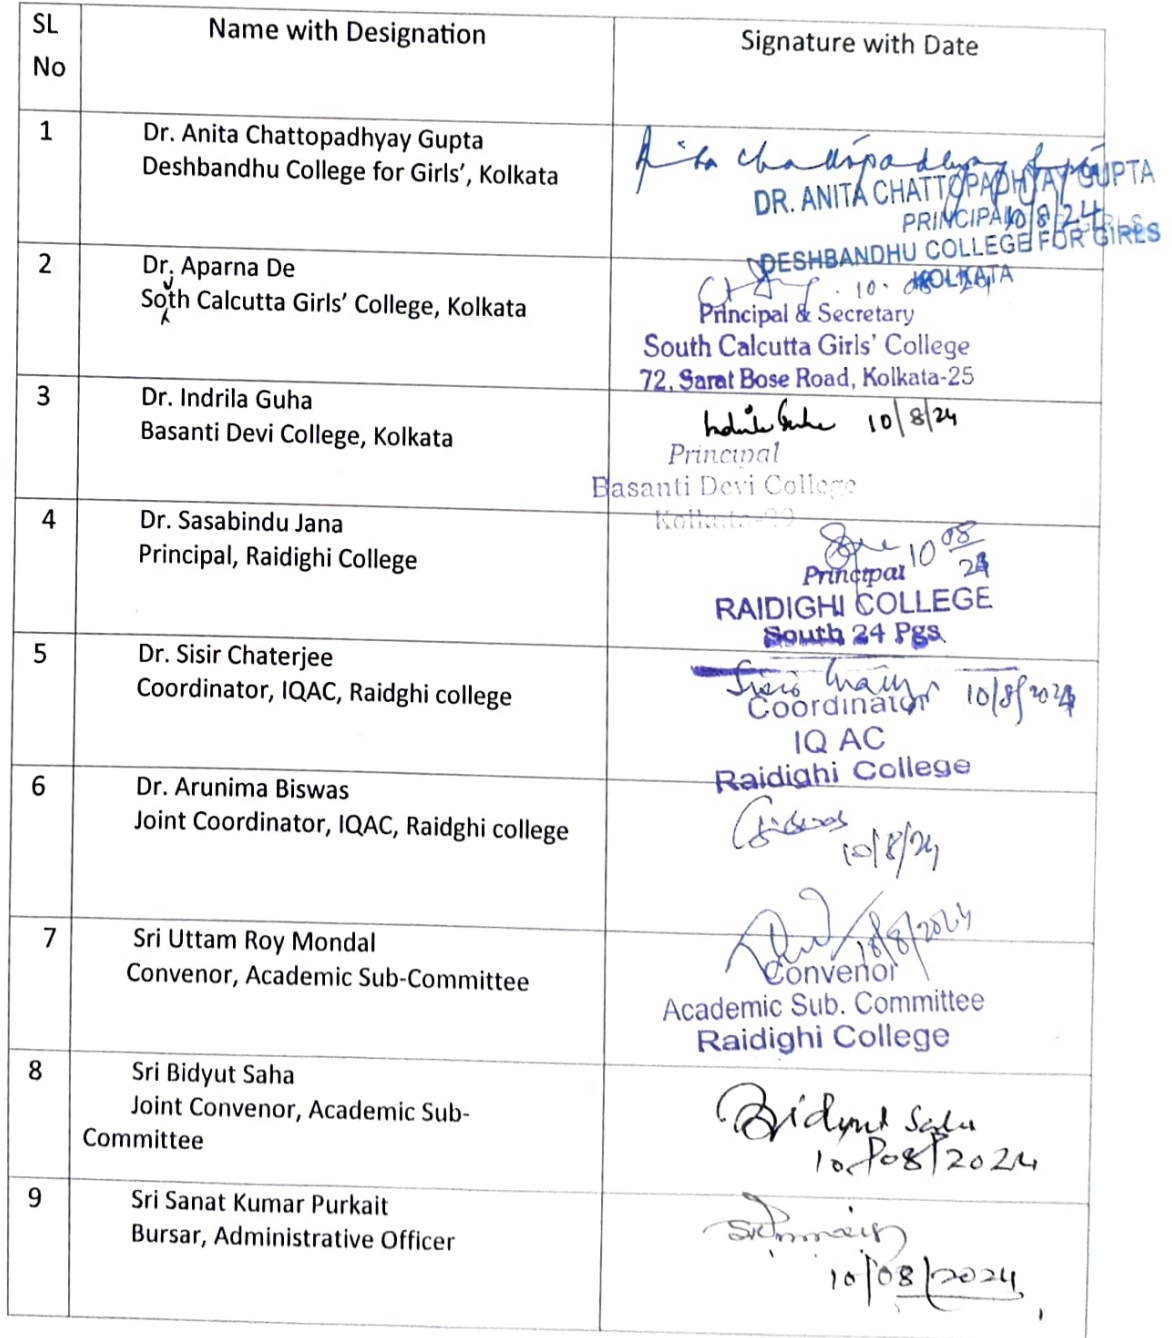 SL
No
Name with Designation
Signature with Date
1
Dr. Anita Chattopadhyay Gupta
Deshbandhu College for Girls’, Kolkata
Anita Chattopadhyay Gupta
DR. ANITA CHATTOPADHYAY GUPTA
PRINCIPAL
10/8/24
DESHBANDHU COLLEGE FOR GIRLS
KOLKATA
2
Dr. Aparna De
Soth Calcutta Girls’ College, Kolkata
u
10.08.24
Principal & Secretary
South Calcutta Girls' College
72, Sarat Bose Road, Kolkata-25
3
Dr. Indrila Guha
Basanti Devi College, Kolkata
Indrila Guha 10/8/24
Principal
Basanti Devi College
4
Dr. Sasabindu Jana
Principal, Raidighi College
10 08/24
Principal
RAIDIGHI COLLEGE
South 24 Pgs.
5
Dr. Sisir Chaterjee
Coordinator, IQAC, Raidghi college
10/8/2024
Coordinator
IQ AC
Raidighi College
6
Dr. Arunima Biswas
Joint Coordinator, IQAC, Raidghi college
Biswas
10/8/24
7
Sri Uttam Roy Mondal
Convenor, Academic Sub-Committee
10/8/2024
Convenor
Academic Sub. Committee
Raidighi College
8
Sri Bidyut Saha
Joint Convenor, Academic Sub-
Committee
Bidyut Saha
10/08/2024
9
Sri Sanat Kumar Purkait
Bursar, Administrative Officer
10/08/2024